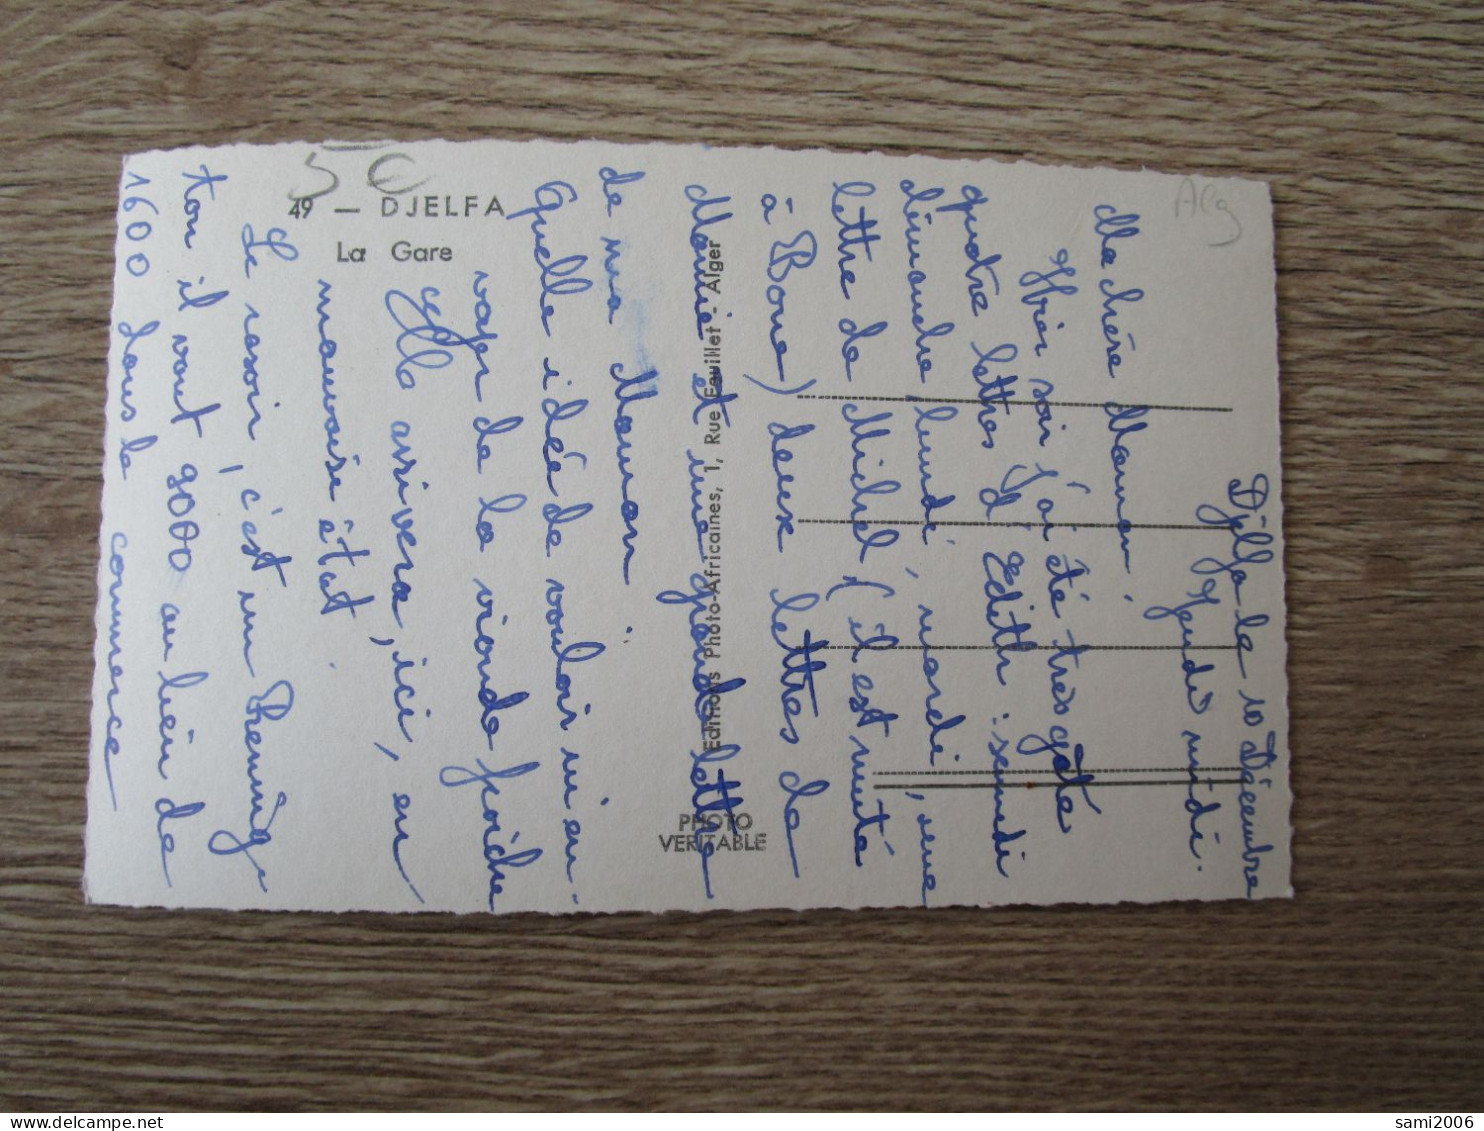 Djelfa le 10 Décembre
Jeudi midi.
Ma chère Maman,
Hier soir j'ai été très gâté
quatre lettres d'Edith : samedi
dimanche, lundi, mardi, une
lettre de Michel, (il est muté
à Bone) deux lettres de
Mamie et une grande lettre
de ma Maman,
Quelle idée de vouloir m'en-
voyer de la viande fraîche
Elle arrivera, ici, en
mauvaise état,
Le rasoir, c'est un Reming-
ton il vaut 9000 au lieu de
1600 dans la commerce
49 — DJELFA
La Gare
Editions Photo-Africaines, 1, Rue Feuillet - Alger
PHOTO
VERITABLE
5 €
Alg
sami2006
delcampe.net